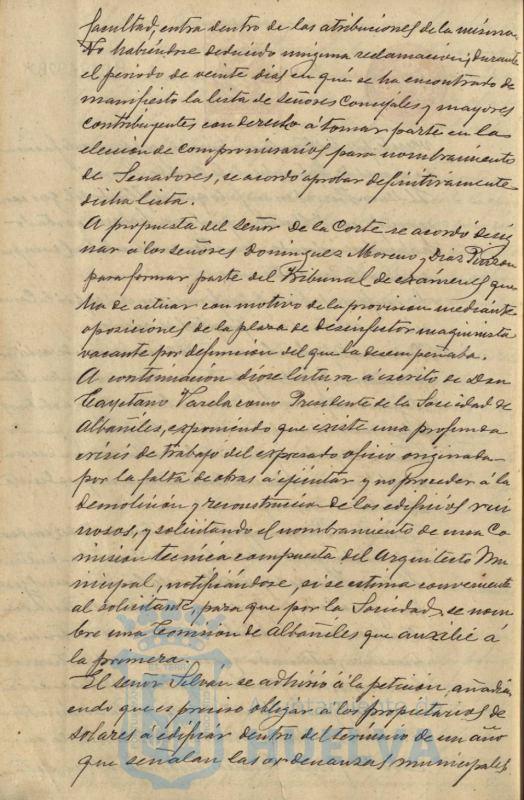 facultad, entra dentro de las atribuciones de la misma.
No habiendose deducido ninguna reclamación, durante
el periodo de veinte dias en qué se ha encontrado de
manifiesto la lista de señores Concejales y mayores
contribuyentes con derecho á tomar parte en la
elección de Compromisarios para nombramiento
de Senadores, se acordó aprobar definitivamente
dicha lista.
A propuesta del señor de la Corte se acordó desig
nar á los señores Dominguez Moreno y Diaz
para formar parte del Tribunal de exámenes que
ha de actuar con motivo de la provision mediante
oposiciones de la plaza de desinfector maquinista
vacante por defunción del que la desempeñaba.
A continuación diose lectura á escrito de Don
Cayetano Varela como Presidente de la Sociedad de
Albañiles, exponiendo que existe una profunda
crisis de trabajo del expresado oficio originada
por la falta de obras á ejecutar y no proceder á la
demolición y reconstrucción de los edificios rui
nosos, y solicitando el nombramiento de una Co
misión tecnica compuesta del Arquitecto Mu
nicipal, notificandose, si se estima conveniente
al solicitante, para que por la Sociedad se nom
bre una Comisión de albañiles que auxilie á
la primera.
El señor Silvan se adhirió á la petición, añadi
endo que es preciso obligar á los propietarios de
solares á edificar dentro del termino de un año
que señalan las ordenanzas municipales
HUELVA